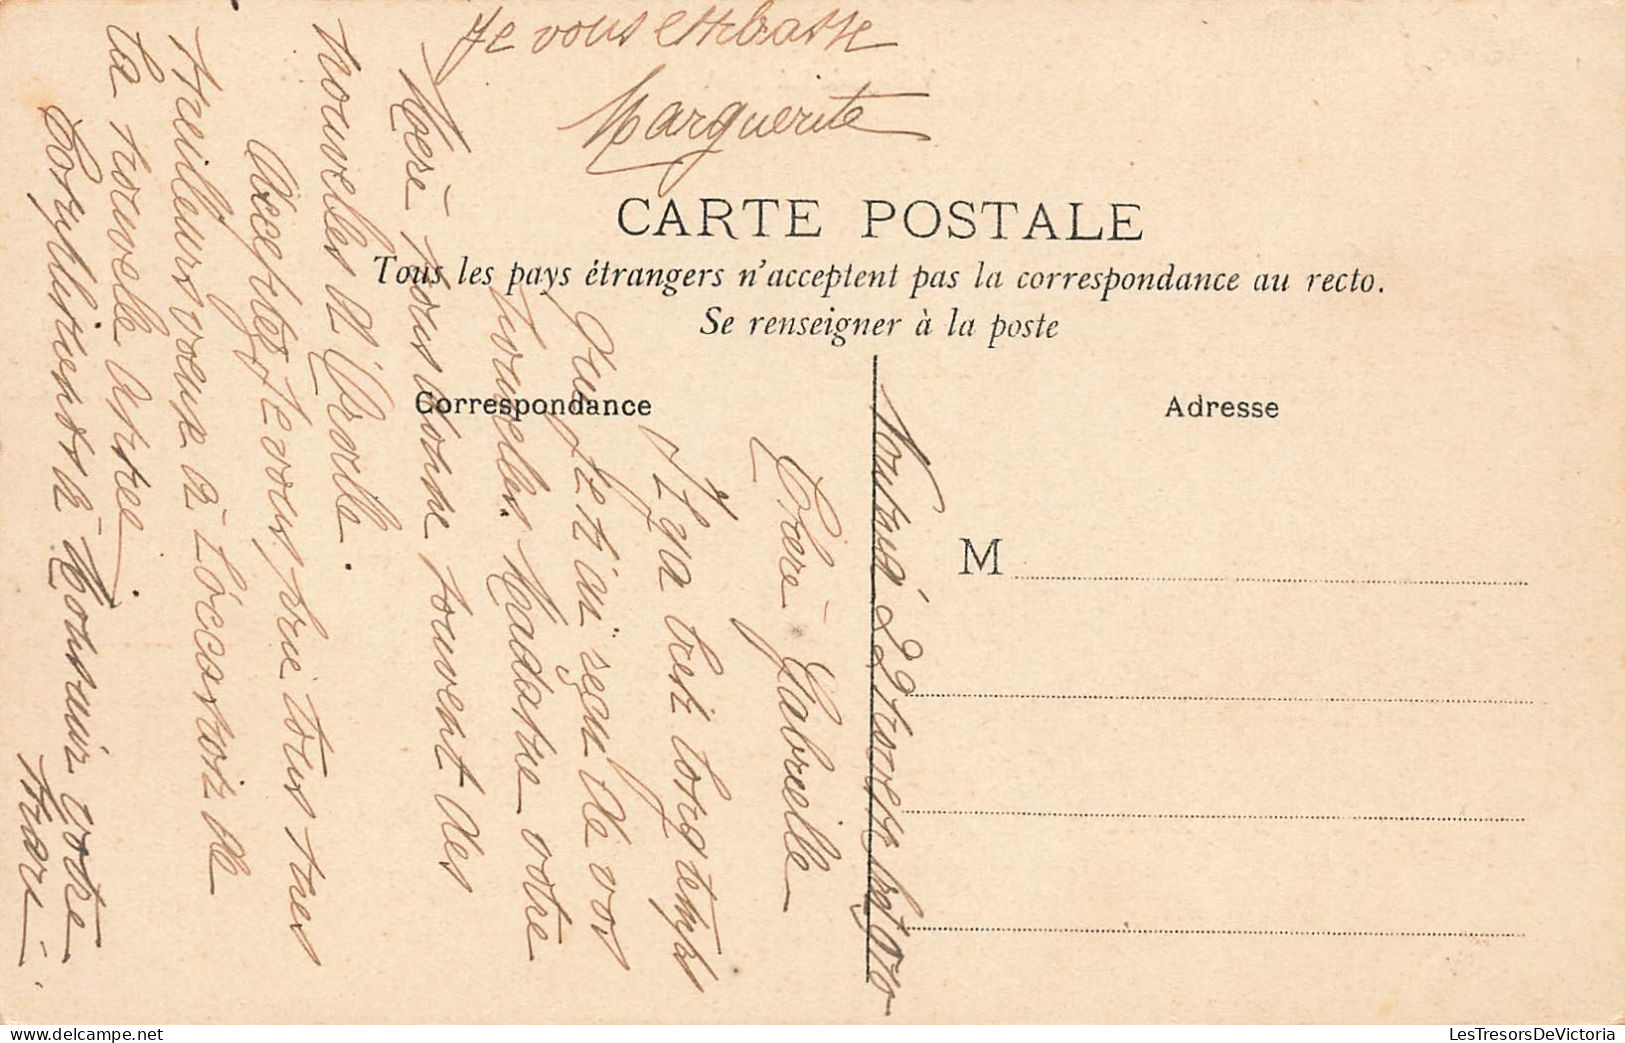 CARTE POSTALE
Tous les pays étrangers n'acceptent pas la correspondance au recto.
Se renseigner à la poste
Correspondance
Adresse
M
Chère Gabrielle
Il y a tres longtemps
que je n'ai reçu de vos
nouvelles. Madame votre
Mere nous donne souvent des
nouvelles d'
Acceptez je vous prie tous mes
meilleurs voeux à l'occasion de
la nouvelle année
à Monsuir votre
mari.
Je vous embrasse
Marguerite
LesTresorsDeVictoria
delcampe.net